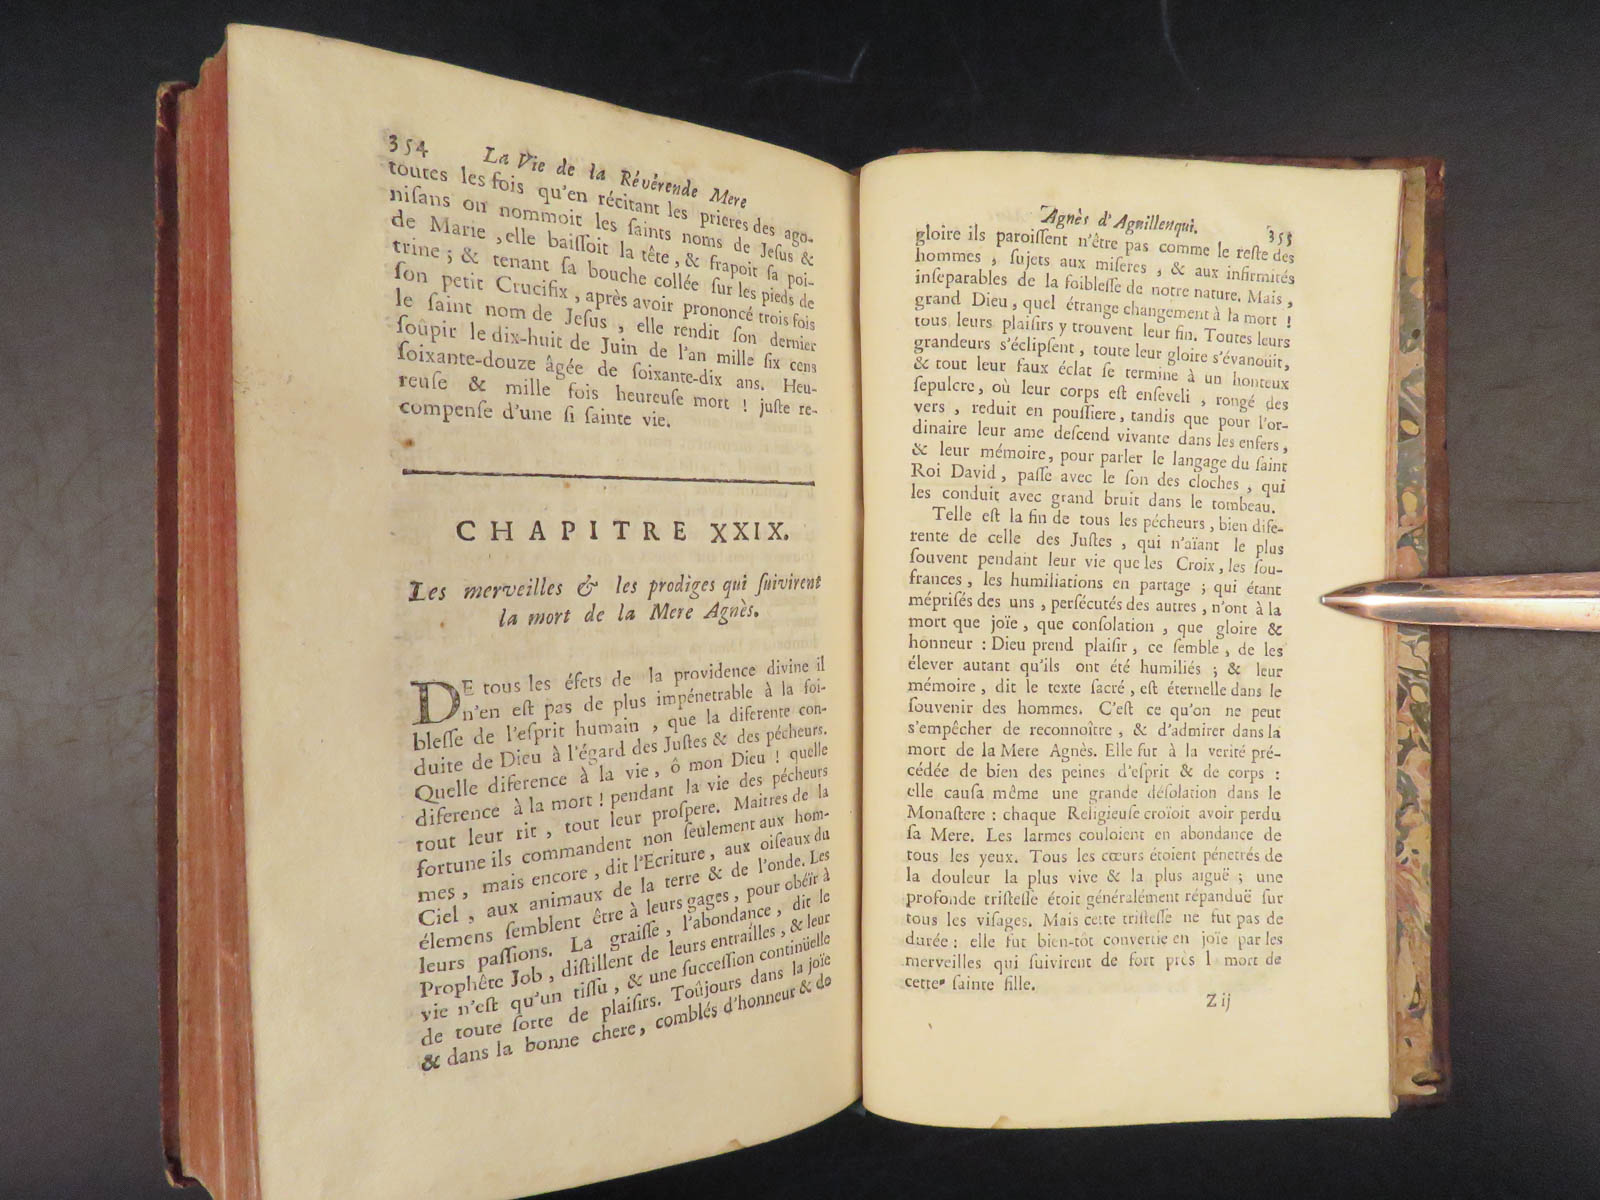 354 La Vie de la Révérende Mere
toutes les fois qu'en récitant les prieres des ago-
niſans on nommoit les ſaints noms de Jeſus &
de Marie, elle baiſſoit la tête, & frapoit ſa poi-
trine ; & tenant ſa bouche collée ſur les pieds de
ſon petit Crucifix, après avoir prononcé trois fois
le ſaint nom de Jeſus, elle rendit ſon dernier
ſoûpir le dix-huit de Juin de l'an mille ſix cens
ſoixante-douze âgée de ſoixante-dix ans. Heu-
reuſe & mille fois heureuſe mort ! juſte re-
compenſe d'une ſi ſainte vie.
CHAPITRE XXIX.
Les merveilles & les prodiges qui ſuivirent
la mort de la Mere Agnès.
DE tous les éfets de la providence divine il
n'en eſt pas de plus impénetrable à la foi-
bleſſe de l'eſprit humain, que la diferente con-
duite de Dieu à l'égard des Juſtes & des pécheurs.
Quelle diference à la vie, ô mon Dieu ! quelle
diference à la mort ! pendant la vie des pécheurs
tout leur rit, tout leur proſpere. Maitres de la
fortune ils commandent non ſeulement aux hom-
mes, mais encore, dit l'Ecriture, aux oiſeaux du
Ciel, aux animaux de la terre & de l'onde. Les
élemens ſemblent être à leurs gages, pour obéïr à
leurs paſſions. La graiſſe, l'abondance, dit le
Prophête Job, diſtillent de leurs entrailles, & leur
vie n'eſt qu'un tiſſu, & une ſucceſſion continüelle
de toute ſorte de plaiſirs. Toûjours dans la joïe
& dans la bonne chere, comblés d'honneur & de
Agnès d'Aguillenqui. 355
gloire ils paroiſſent n'être pas comme le reſte des
hommes, ſujets aux miſeres, & aux infirmités
inſeparables de la foibleſſe de notre nature. Mais,
grand Dieu, quel étrange changement à la mort !
tous leurs plaiſirs y trouvent leur fin. Toutes leurs
grandeurs s'éclipſent, toute leur gloire s'évanoüit,
& tout leur faux éclat ſe termine à un honteux
ſepulcre, où leur corps eſt enſeveli, rongé des
vers, reduit en pouſſiere, tandis que pour l'or-
dinaire leur ame deſcend vivante dans les enfers,
& leur mémoire, pour parler le langage du ſaint
Roi David, paſſe avec le ſon des cloches, qui
les conduit avec grand bruit dans le tombeau.
Telle eſt la fin de tous les pécheurs, bien dife-
rente de celle des Juſtes, qui n'aïant le plus
ſouvent pendant leur vie que les Croix, les ſou-
frances, les humiliations en partage ; qui étant
mépriſés des uns, perſécutés des autres, n'ont à la
mort que joïe, que conſolation, que gloire &
honneur : Dieu prend plaiſir, ce ſemble, de les
élever autant qu'ils ont été humiliés ; & leur
mémoire, dit le texte ſacré, eſt éternelle dans le
ſouvenir des hommes. C'eſt ce qu'on ne peut
s'empêcher de reconnoître, & d'admirer dans la
mort de la Mere Agnès. Elle fut à la verité pré-
cédée de bien des peines d'eſprit & de corps :
elle cauſa même une grande déſolation dans le
Monaſtere : chaque Religieuſe croïoit avoir perdu
ſa Mere. Les larmes couloient en abondance de
tous les yeux. Tous les cœurs étoient pénetrés de
la douleur la plus vive & la plus aiguë ; une
profonde triſteſſe étoit généralement répanduë ſur
tous les viſages. Mais cette triſteſſe ne fut pas de
durée : elle fut bien-tôt convertie en joïe par les
merveilles qui ſuivirent de fort près l mort de
cette ſainte fille.
Z ij